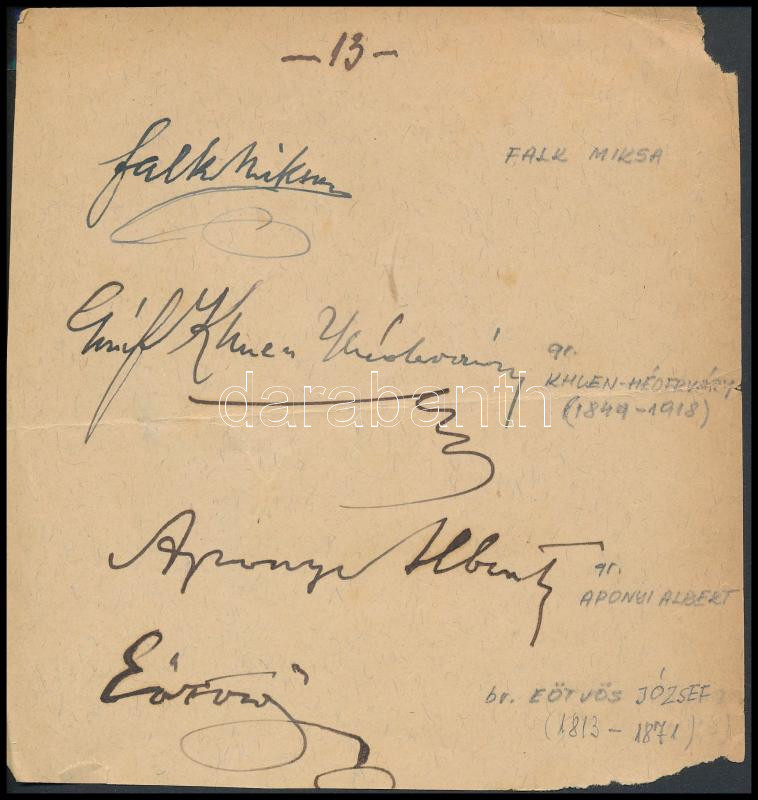 —13—
Falk Miksa
FALK MIKSA
Gróf Khuen Héderváry
gr.
KHUEN-HÉDERVÁRY
(1849-1918)
darabanth
Apponyi Albert
gr.
APONYI ALBERT
Eötvös
br. EÖTVÖS JÓZSEF
(1813 - 1871)